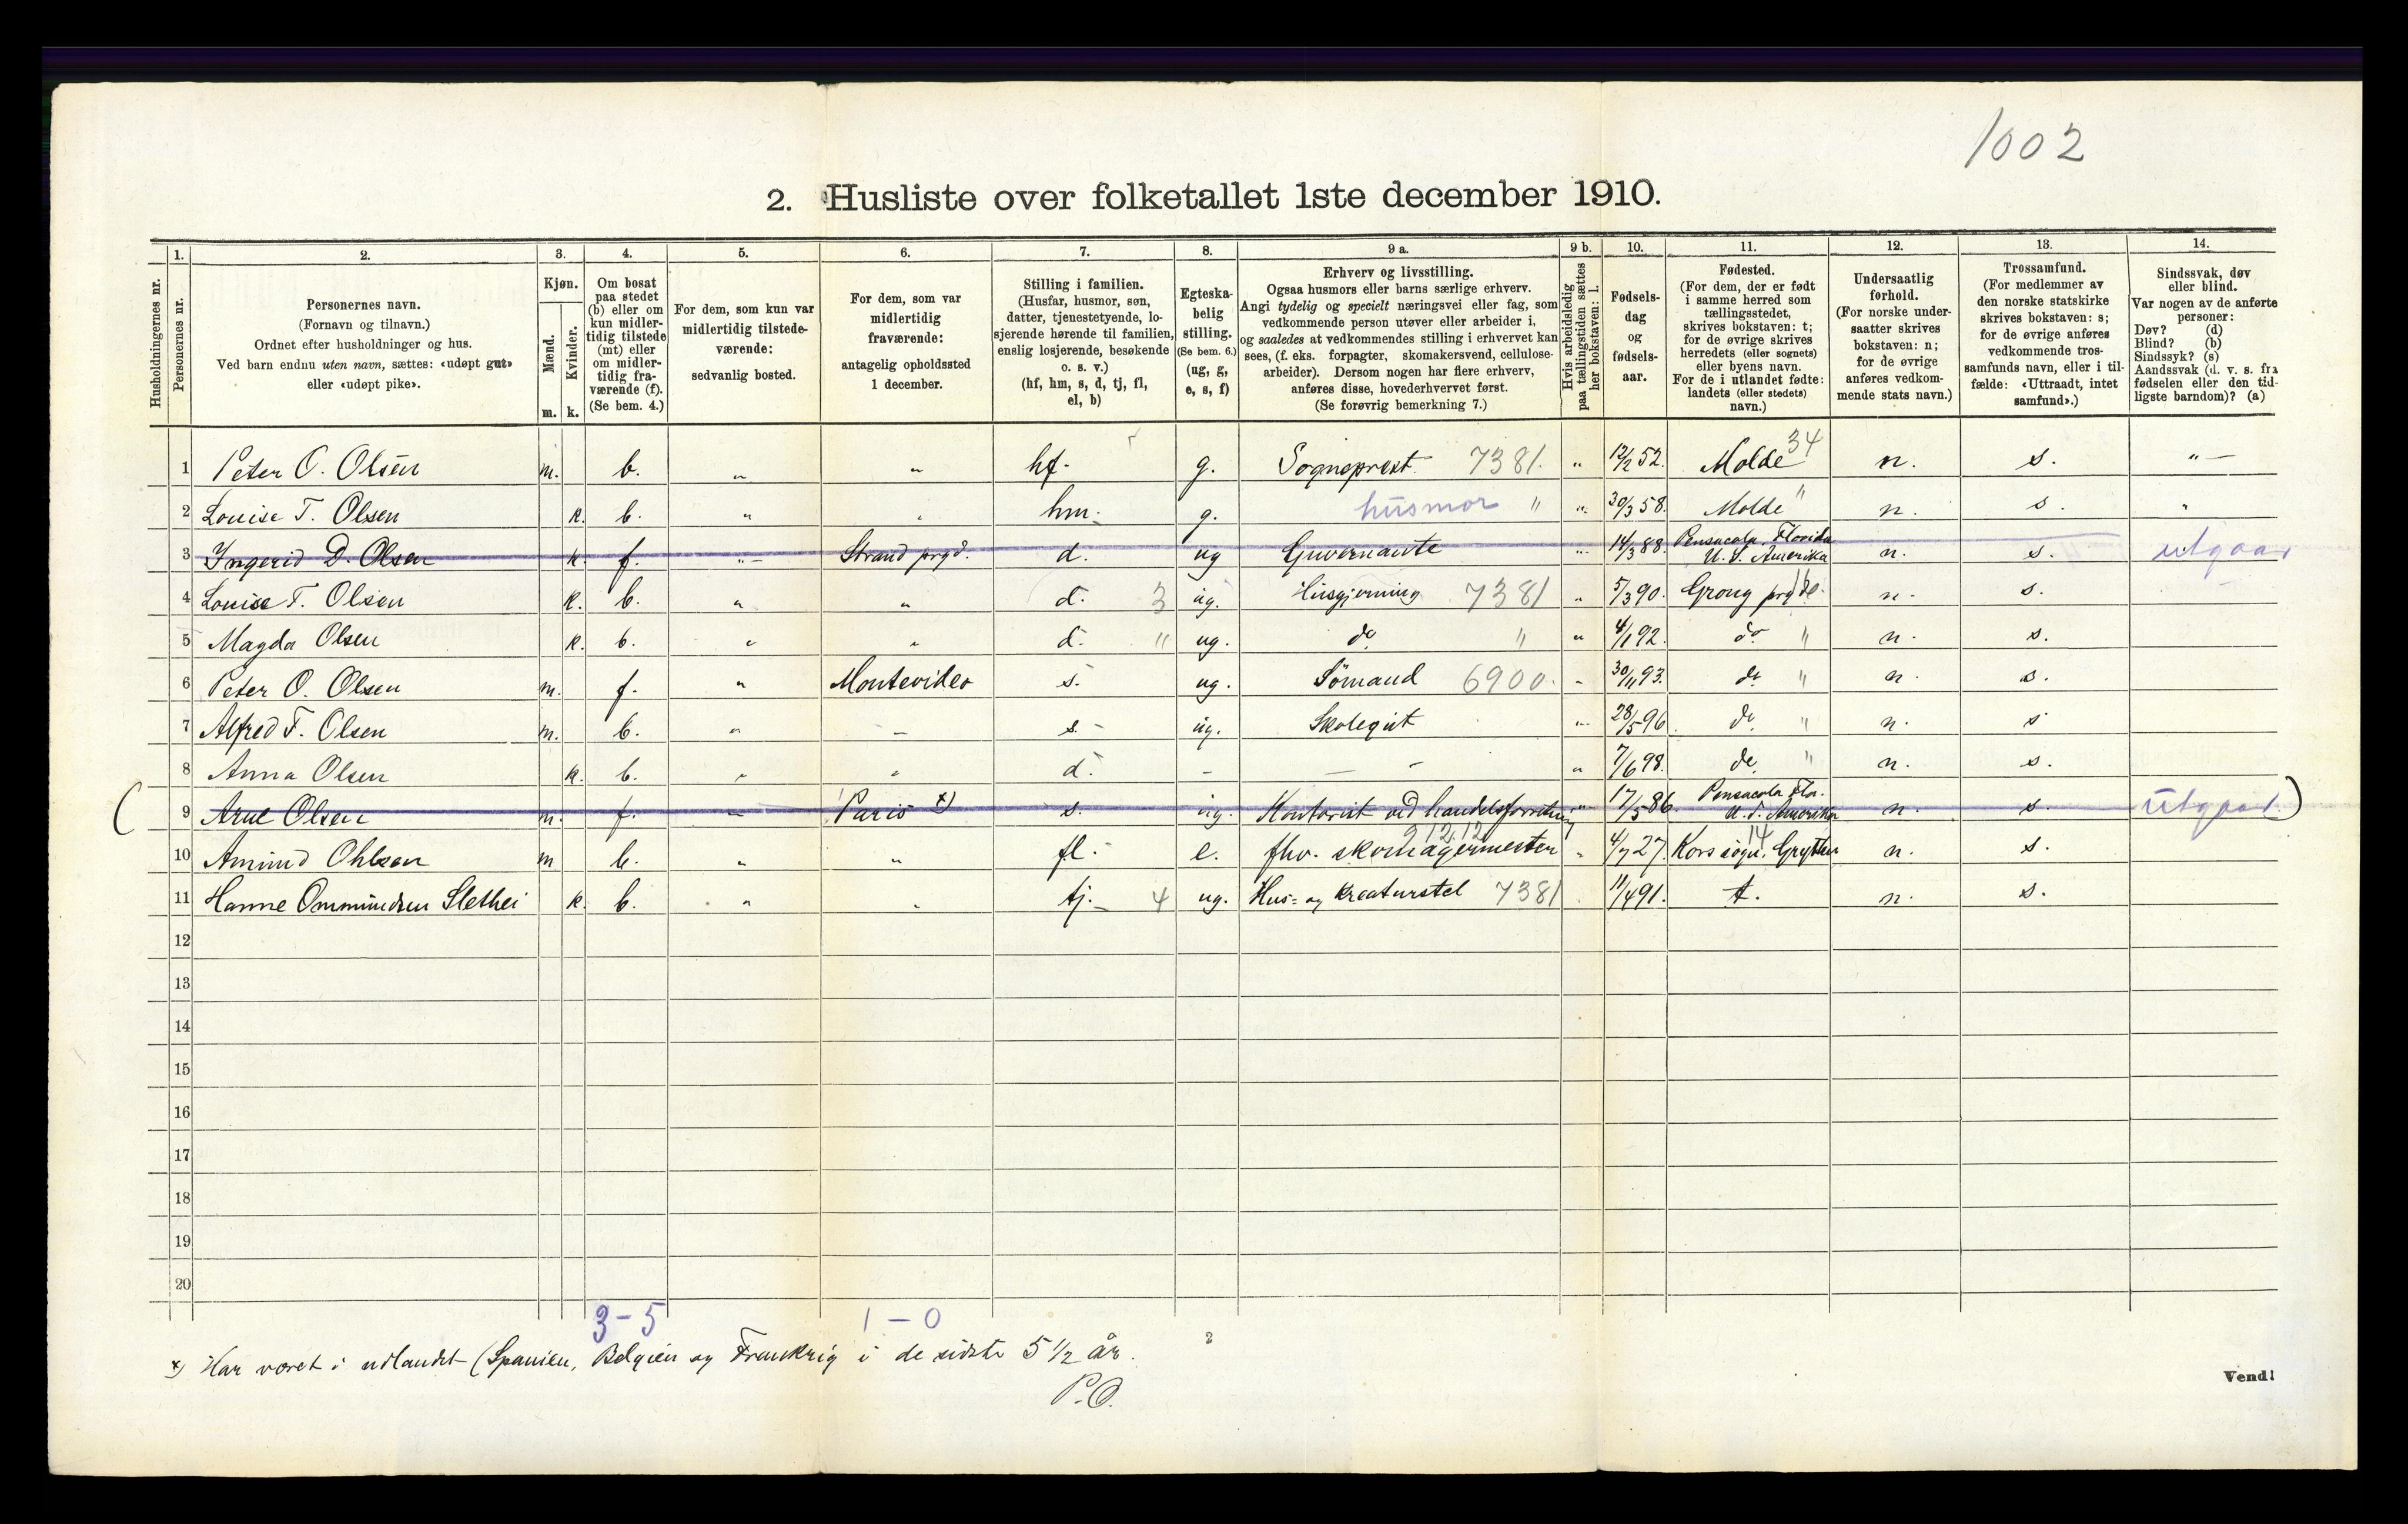 1002
2. Husliste over folketallet 1ste december 1910.
Husholdningernes nr.
1. Personernes nr.
2. Personernes navn. (Fornavn og tilnavn.) Ordnet efter husholdninger og hus. Ved barn endnu uten navn, sættes: «udøpt gut» eller «udøpt pike».
3. Kjøn. Mænd. Kvinder. m. k.
4. Om bosat paa stedet (b) eller om kun midlertidig tilstede (mt) eller om midlertidig fraværende (f). (Se bem. 4.)
5. For dem, som kun var midlertidig tilstedeværende: sedvanlig bosted.
6. For dem, som var midlertidig fraværende: antagelig opholdssted 1 december.
7. Stilling i familien. (Husfar, husmor, søn, datter, tjenestetyende, losjerende hørende til familien, enslig losjerende, besøkende o. s. v.) (hf, hm, s, d, tj, fl, el, b)
8. Egteskabelig stilling. (Se bem. 6.) (ug, g, e, s, f)
9 a. Erhverv og livsstilling. Ogsaa husmors eller barns særlige erhverv. Angi tydelig og specielt næringsvei eller fag, som vedkommende person utøver eller arbeider i, og saaledes at vedkommendes stilling i erhvervet kan sees, (f. eks. forpagter, skomakersvend, cellulosearbeider). Dersom nogen har flere erhverv, anføres disse, hovederhvervet først. (Se forøvrig bemerkning 7.)
9 b. Hvis arbeidsledig paa tællingstiden sættes her bokstaven: l.
10. Fødselsdag og fødselsaar.
11. Fødested. (For dem, der er født i samme herred som tællingsstedet, skrives bokstaven: t; for de øvrige skrives herredets (eller sognets) eller byens navn. For de i utlandet fødte: landets (eller stedets) navn.)
12. Undersaatlig forhold. (For norske undersaatter skrives bokstaven: n; for de øvrige anføres vedkommende stats navn.)
13. Trossamfund. (For medlemmer av den norske statskirke skrives bokstaven: s; for de øvrige anføres vedkommende trossamfunds navn, eller i tilfælde: «Uttraadt, intet samfund».)
14. Sindssvak, døv eller blind. Var nogen av de anførte personer: Døv? (d) Blind? (b) Sindssyk? (s) Aandssvak (d. v. s. fra fødselen eller den tidligste barndom)? (a)
1 Peter O. Olsen m. b. " " hf. g. Sogneprest 7381. " 12/2 52. Molde 34 n. s. "—
2 Louise T. Olsen k. b. " " hm. g. husmor " " 30/3 58. Molde " n. s. "
3 Ingerid D. Olsen k. f. "— Strand prgd. d. ug Guvernante " 14/3 88. Pensacola, Florida U. S. Amerika n. s. utgaar
4 Louise T. Olsen k. b. " " d. 3 ug. Husgjerning 7381 " 5/3 90. Grong prgd. n. s.
5 Magda Olsen k. b. " " d. " ug. do " " 4/1 92. do " n. s.
6 Peter O. Olsen m. f. " Montevideo s. ug. Sömand 6900. " 30/11 93. do " n. s.
7 Alfred F. Olsen m. b. " — s. ug. Skolegut " 28/5 96 do " n. s
8 Anna Olsen k. b. " " d. — — " 7/6 98. do " n. s.
( 9 Arne Olsen m. f. " Paris x) s. ug. Kontorist ved handelsforretning " 17/5 86. Pensacola Flor. U. S. Amerika n. s. utgaar. )
10 Amund Ohlsen m b. " " fl. e. fhv. skomagermester 91212 " 4/7 27. Kors sogn, Grytten 14 n. s.
11 Hanne Ommundsen Slethei k. b. " " tj. 4 ug. Hus- og kreaturstel 7381 11/4 91. t. n. s.
12
13
14
15
16
17
18
19
20
3 – 5 1 – 0
x) Har været i udlandet (Spanien, Belgien og Frankrig i de sidste 5 1/2 år.
2
P. O.
Vend!